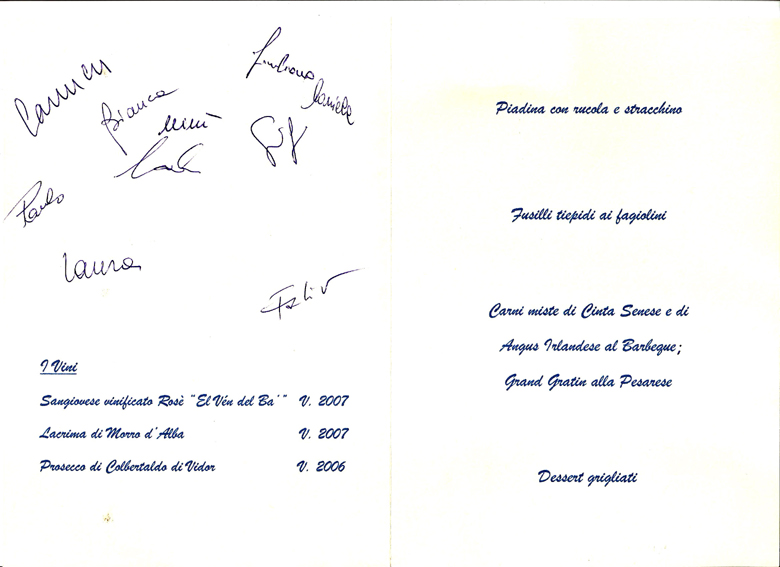 Carmen
Bianca
Mimì
Giuliana
Daniele
Carlo
Paolo
Laura
I Vini
Sangiovese vinificato Rosè "El Vén del Ba'" V. 2007
Lacrima di Morro d'Alba V. 2007
Prosecco di Colbertaldo di Vidor V. 2006
Piadina con rucola e stracchino
Fusilli tiepidi ai fagiolini
Carni miste di Cinta Senese e di
Angus Irlandese al Barbeque;
Grand Gratin alla Pesarese
Dessert grigliati